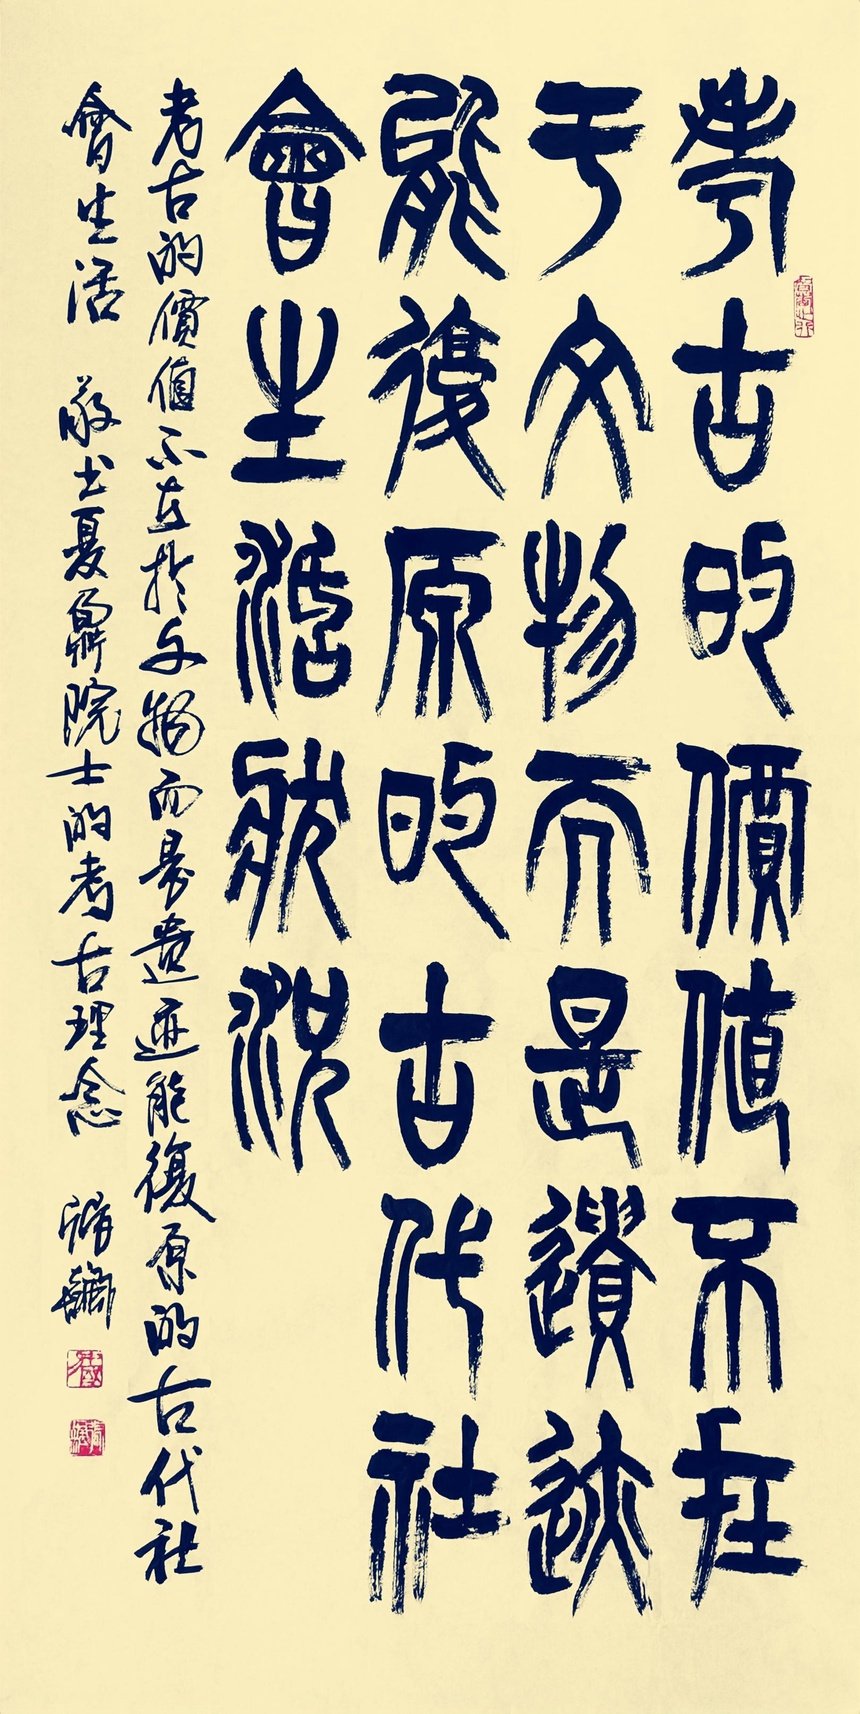 考古的價值不在
于文物而是遺迹
能復原的古代社
會生活狀況
考古的價值不在於文物而是遺迹能復原的古代社
會生活 敬书夏鼐院士的考古理念